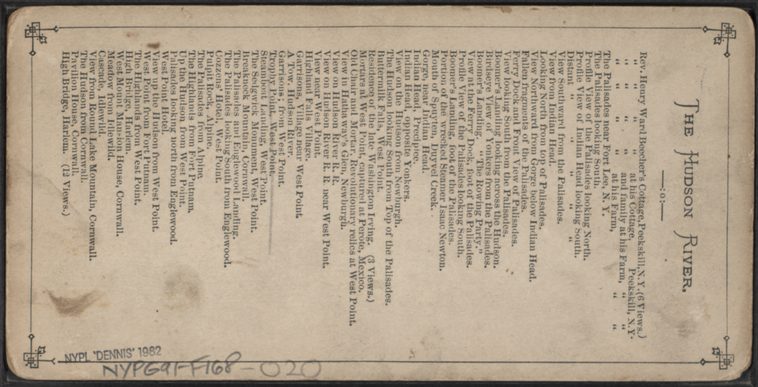 THE HUDSON RIVER.
—:o:—
Rev. Henry Ward Beecher's Cottage, Peekskill, N.Y. (6 Views.)
" " " at his Cottage Peekskill, N.Y.
" " " and family at his Farm, " "
" " " his Farm, " "
The Palisades near Fort Lee, N. Y.
The Palisades looking South.
Profile View of the Palisades looking North.
Profile View of Indian Head looking South.
Distant " " " " "
View Southward from the Palisades.
View from Indian Head.
Looking North from top of Palisades.
View Northward from Gorge below Indian Head.
Fallen fragments of the Palisades.
Ferry Dock and Front view of Palisades.
View looking South from the Palisades.
Boomer's Landing looking across the Hudson.
Birdseye View of Yonkers from the Palisades.
Boomer's Landing. "The Rowing Party."
View at the Ferry Dock, foot of the Palisades.
Profile View of the Palisades looking South.
Boomer's Dock, foot of the Palisades.
Portion of the wrecked Steamer Isaac Newton.
Mouth of Spuytenduyvel Creek.
Gorge, near Indian Head.
Indian Head Precipice.
Indian Head, from Yonkers.
View on the Hudson from Newburgh.
The Hudson looking South from Top of the Palisades.
Buttermilk Falls.
Residence of the late Washington Irving. (3 Views.)
Mortars at West Point, captured at Perote, Mexico.
Old Chain and Mortar, Revolutionary relics at West Point.
View in Hathaway's Glen, Newburgh.
View on Hudson River R. R.
View on Hudson River R. R. near West Point.
View near West Point.
Highland Falls Village.
Garrisons, Village near West Point.
A Tow. Hudson River.
Garrisons from West Point.
Trophy Point, West Point.
Steamboat Landing, West Point.
The Sedgwick Monument, West Point.
Breakneck Mountain, Cornwall.
The Palisades and Englewood Landing.
The Palisades looking South from Englewood.
Cozzens' Hotel, West Point.
Pulpit Rock, Alpine.
The Palisades at Alpine.
The Highlands from Fort Putnam.
Up the Hudson from West Point.
Palisades looking north from Englewood.
West Point Hotel.
View up the Hudson from West Point.
West Point from Fort Putnam.
The Highlands from West Point.
High Bridge, Harlem.
West Mount Mansion House, Cornwall.
Meadow from Idlewild.
Cascades, Idlewild.
View from Round Lake Mountain, Cornwall.
The Hudson from Cornwall.
Pavilion House, Cornwall.
High Bridge, Harlem. (12 Views.)
NYPL 'DENNIS' 1982
NYPG91-F168-020